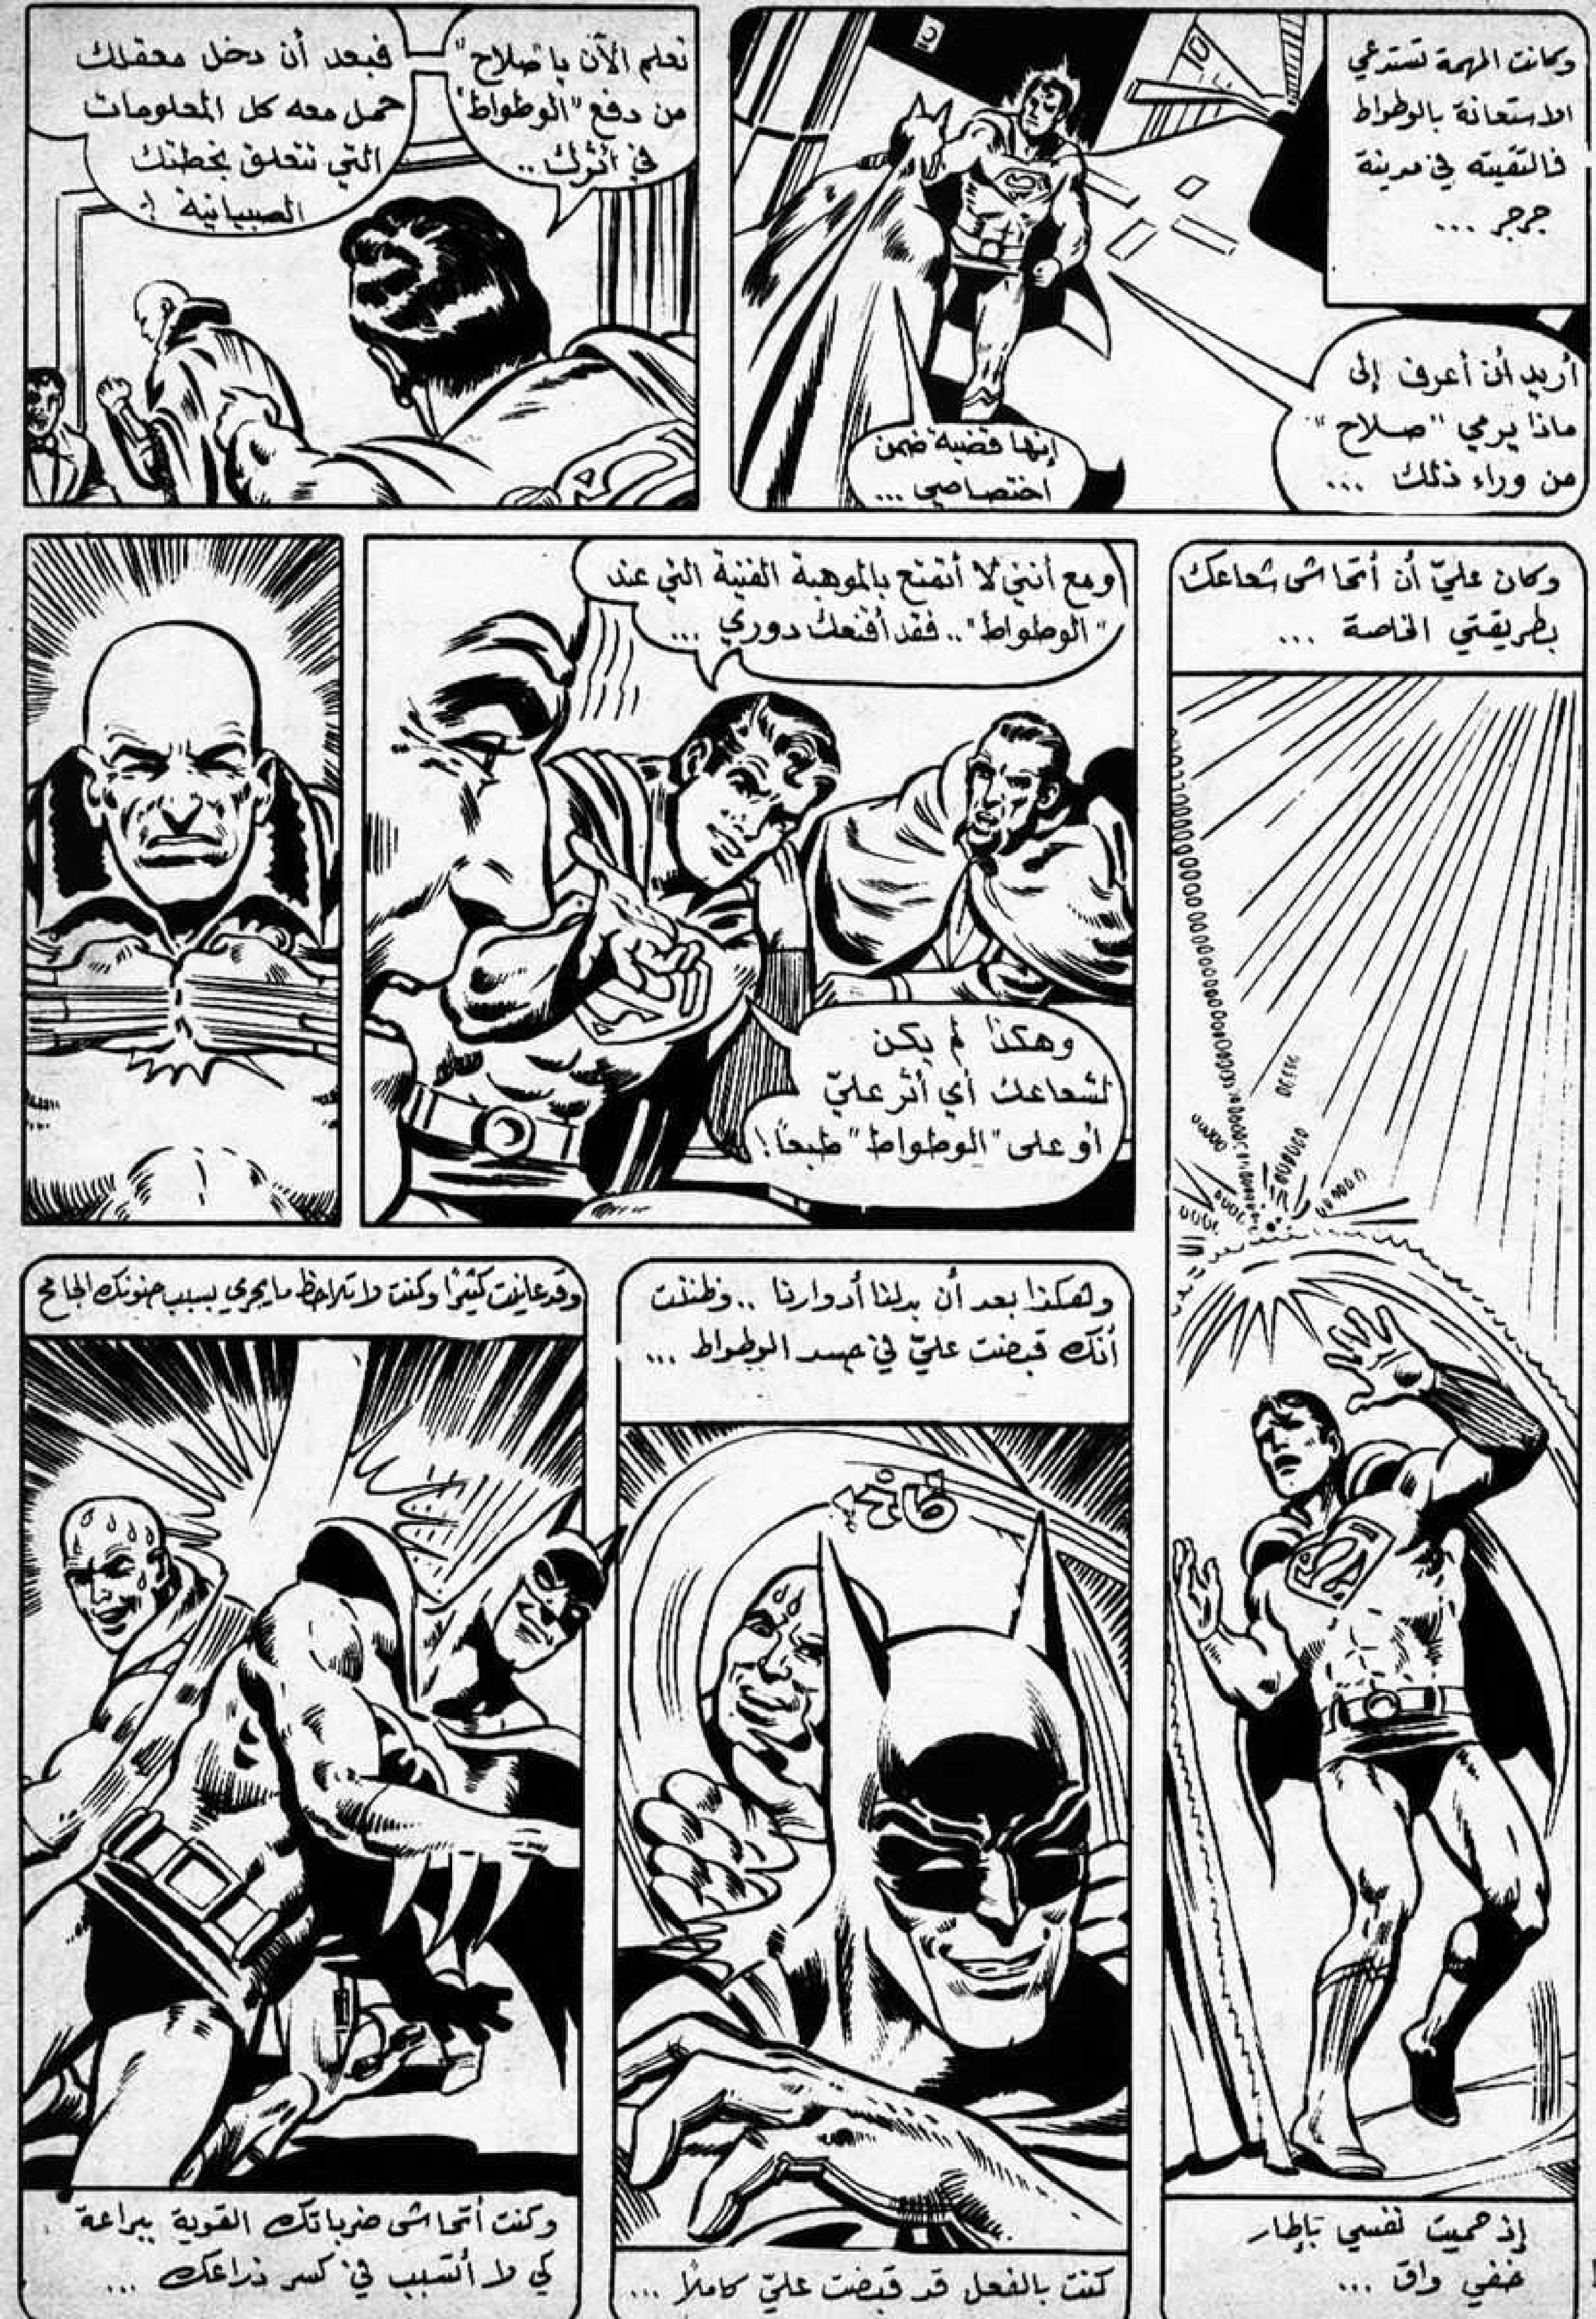 وكانت المهمة تستدعي
الاستعانة بالوطواط
فالتقيته في مدينة
جرجر ...
أريد أن أعرف إلى
ماذا يرمي "صلاح"
من وراء ذلك ...
إنها قضية ضمن
اختصاصي ...
تعلم الآن يا "صلاح"
من دفع "الوطواط"
في أثرك ..
فبعد أن دخل معقلك
حمل معه كل المعلومات
التي تتعلق بخطتك
الصبيانية !
وكان عليّ أن أتحاشى شعاعك
بطريقتي الخاصة ...
إذ حميت نفسي بإطار
خفي واق ...
ومع أنني لا أتمتع بالموهبة الفنية التي عند
"الوطواط" .. فقد أقنعك دوري ...
وهكذا لم يكن
لشعاعك أي أثر عليّ
أو على "الوطواط" طبعاً !
وهكذا بعد أن بدلنا أدوارنا .. وظننت
أنك قبضت عليّ في جسد الوطواط ...
كنت بالفعل قد قبضت عليّ كاملاً ...
وقد عانيت كثيرًا وكنت لا تلاحظ ما يجري بسبب جنونك الجامح
وكنت أتحاشى ضرباتك القوية ببراعة
كي لا أتسبب في كسر ذراعك ...